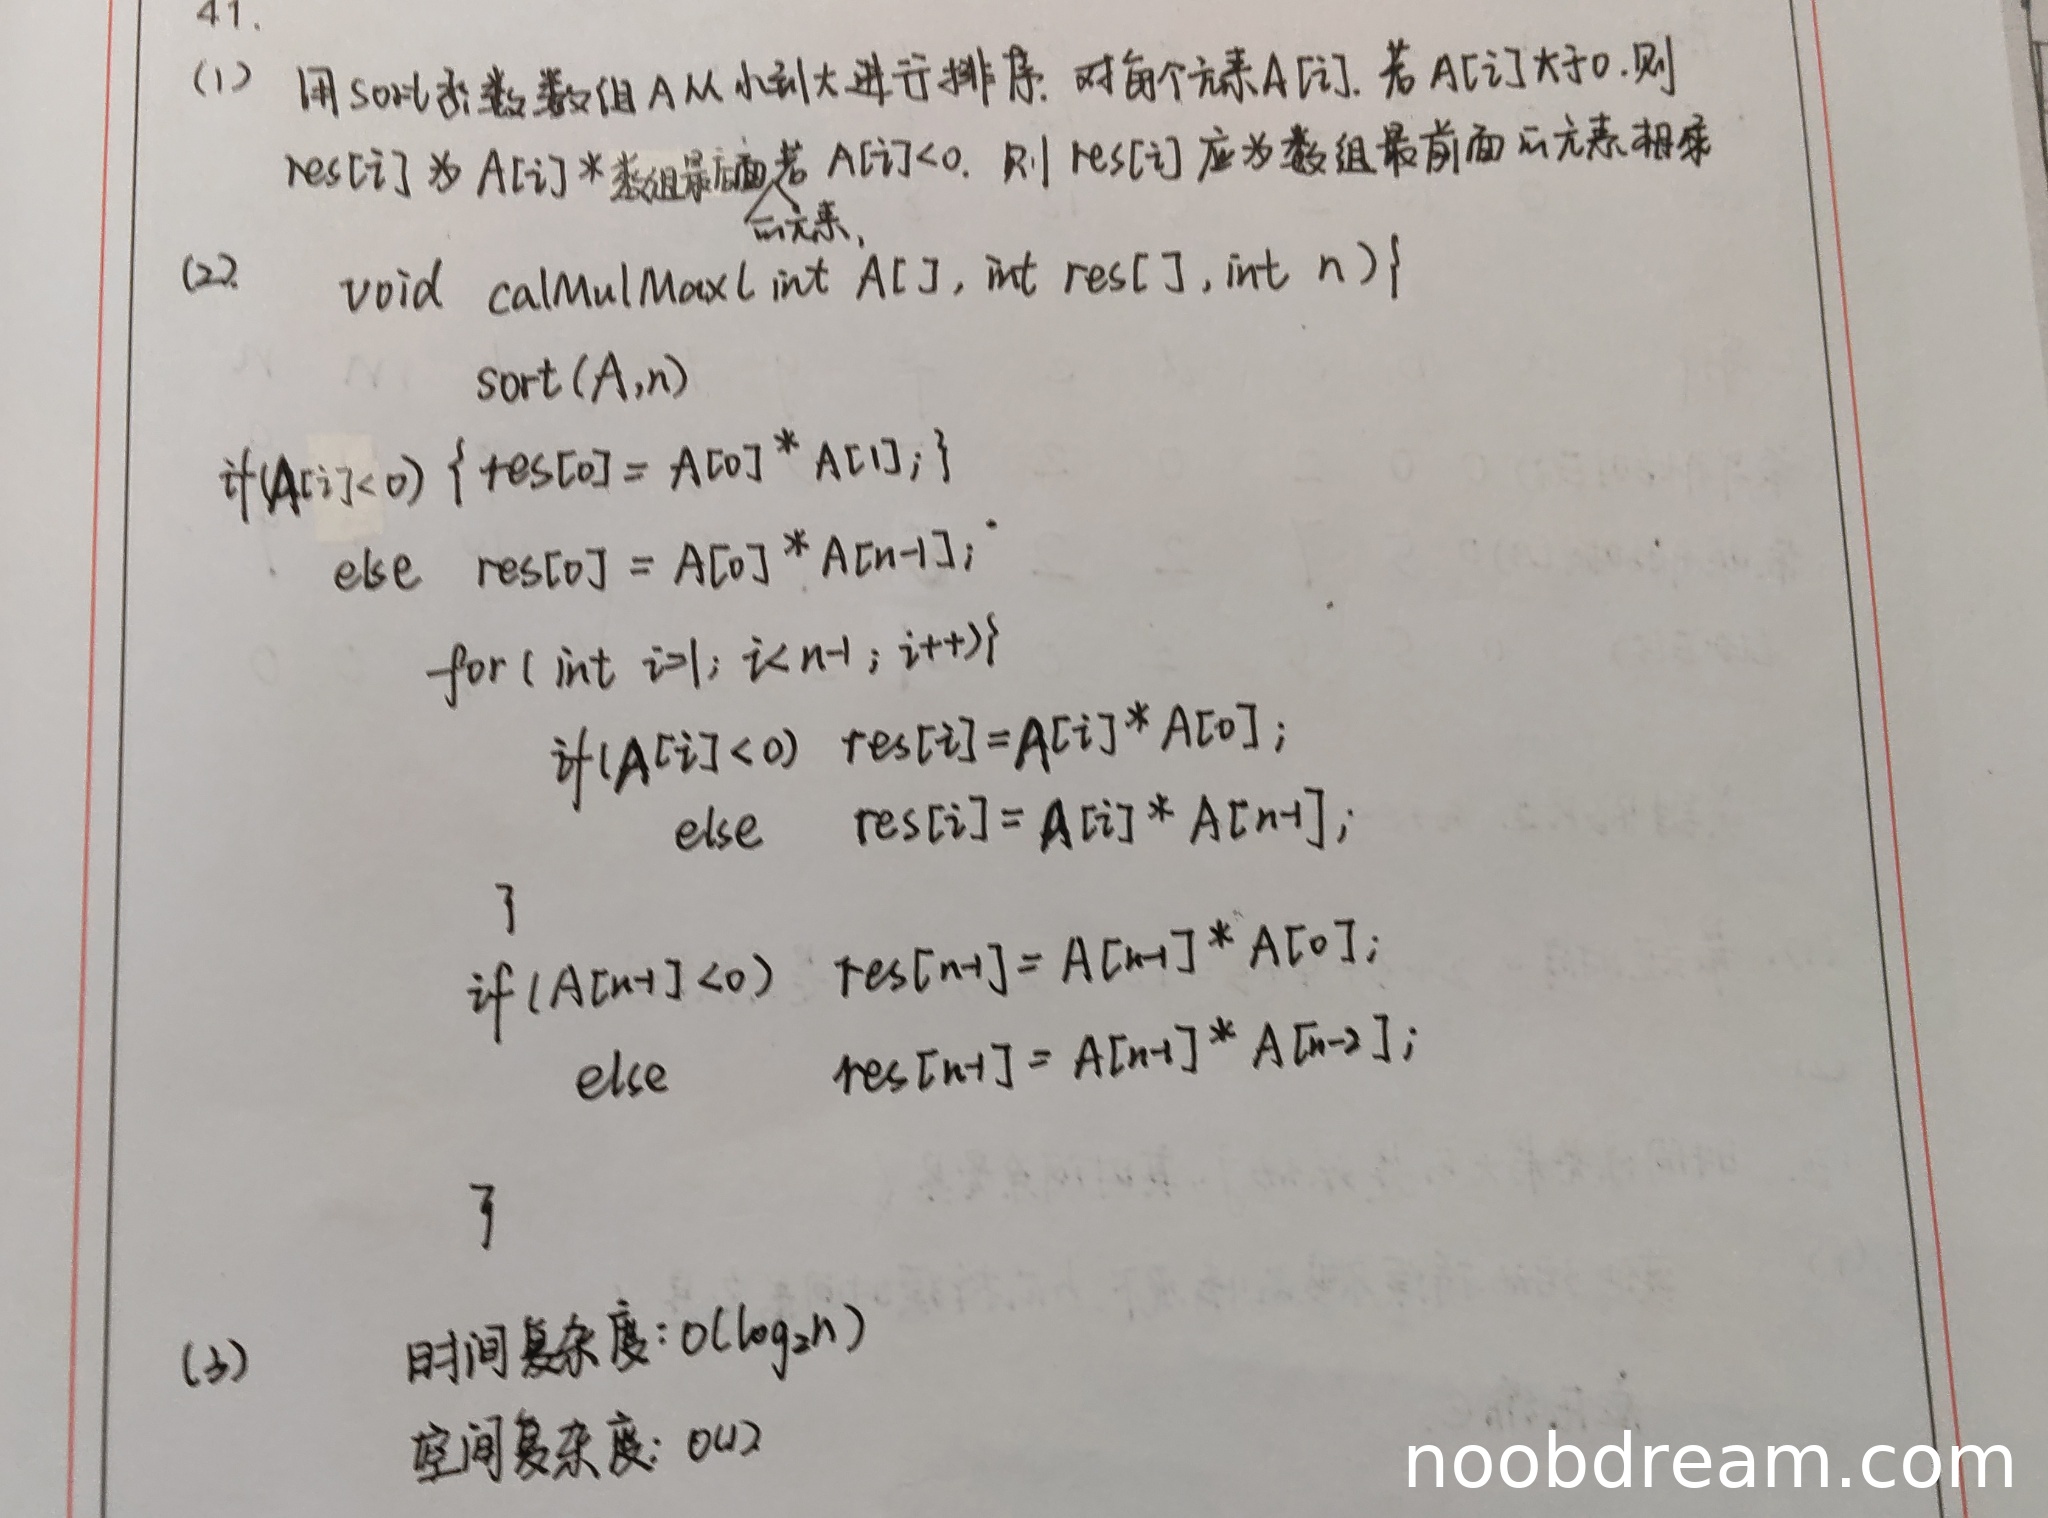 41.
(1) 用sort函数数组A从小到大进行排序. 对每个元素A[i]. 若A[i]大于0.则
res[i]为A[i]*数组最后面的元素, 若A[i]<0. 则res[i]应为数组最前面的元素相乘
(2). void calMulMax(int A[], int res[], int n){
sort(A,n)
if(A[i]<0) {res[0] = A[0]*A[1];}
else res[0] = A[0]*A[n-1];
for(int i=1; i<n-1; i++){
if(A[i]<0) res[i]=A[i]*A[0];
else res[i]=A[i]*A[n-1];
}
if(A[n-1]<0) res[n-1]=A[n-1]*A[0];
else res[n-1]=A[n-1]*A[n-2];
}
(3) 时间复杂度:O(log₂n)
空间复杂度:O(1)
noobdream.com